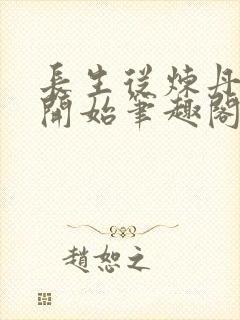 長生從煉丹
開始筆趣閣
趙恕之